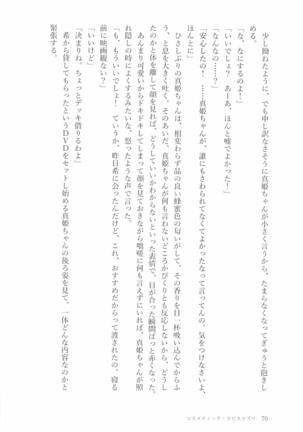 少し拗ねたように、でも申し訳なさそうに真姫ちゃんが小さく言うから、たまらなくなってぎゅうと抱きし
める。
「な、なにするのよ！」
「いいでしょ？　あーあ、ほんと嘘でよかったー！」
「なんなの……？」
「安心したの！　……真姫ちゃんが、誰にもさわられてなくてよかったなって言ってんの。気をつけなさいよ、
ほんとに」
ひさしぶりの真姫ちゃんは、相変わらず品の良い蜂蜜色の匂いがして、その香りを目一杯吸い込んでからふ
う、と息を大きく吐く。そのあいだ、真姫ちゃんが何も言わないどころかぴくりとも反応しないから、どうし
たのかと体を離して顔を見れば、どうしていいかわからないといった表情で、目が合った瞬間ぱっと赤くなった。
あんまり可愛いからドキドキしてしまって顔を見ておきながら咄嗟に何も言えないでいると、真姫ちゃんが照
れ隠しの時によくするみたいな、怒ったような声で言った。
「も、もういいでしょ！　ていうか、昨日希に会ったんだけど、これ、おすすめだからって渡されたの。寝る
前に映画観ない？」
「いいけど」
「決まりね。ちょっとデッキ借りるわよ」
希から貸してもらったというＤＶＤをセットし始める真姫ちゃんの後ろ姿を見て、一体どんな内容なのかと
緊張する。
コスメティック・ラビエカズリ　70